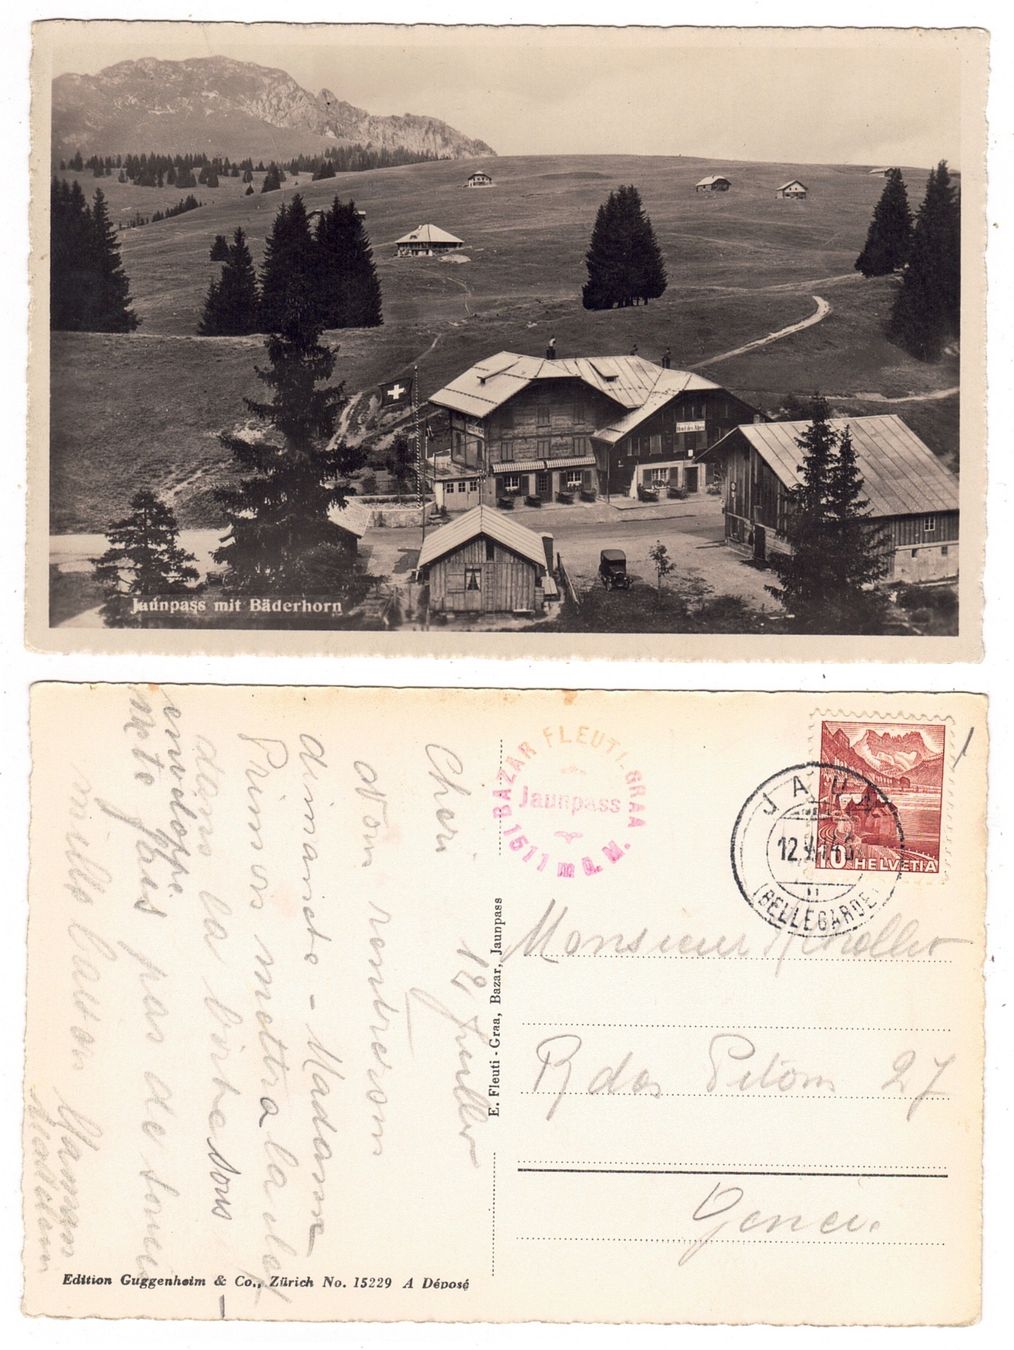 Hotel des Alpes
Jaunpass mit Bäderhorn
BAZAR FLEUTI-GRAA
Jaunpass
1511 m ü. M.
JAUN
12.
(BELLEGARDE)
10 HELVETIA
E. Fleuti-Graa, Bazar, Jaunpass
Cheri
12 juillet
Nom rentreron
dimanche - Madame
Primos mettra la clef
dans la boite sous
enveloppe.
pas de
mille
Maman
Monsieur
R des Pitons 27
Genève
Edition Guggenheim & Co., Zürich No. 15229 A Déposé